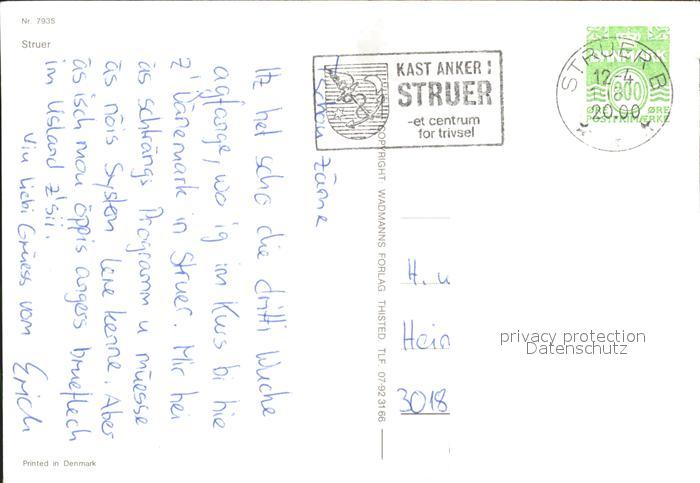 Nr. 7935
Struer
KAST ANKER I
STRUER
-et centrum
for trivsel
STRUER B
12-4
80
20.00
DANMARK
ØRE
POSTFRIMÆRKE
zäme
Itz het scho die dritti Wuche
agfange, wo ig im Kurs bi hie
z'Dänemark in Struer. Mir hei
äs schträngs Programm u müesse
äs nöis System lere kenne. Aber
äs isch mou öppis angers brueflech
im Usland z'sii.
Viu liebi Grüess vom Erich
COPYRIGHT WADMANNS FORLAG THISTED. TLF. 07-92 31 66
H. u
Hein
3018
privacy protection
Datenschutz
Printed in Denmark